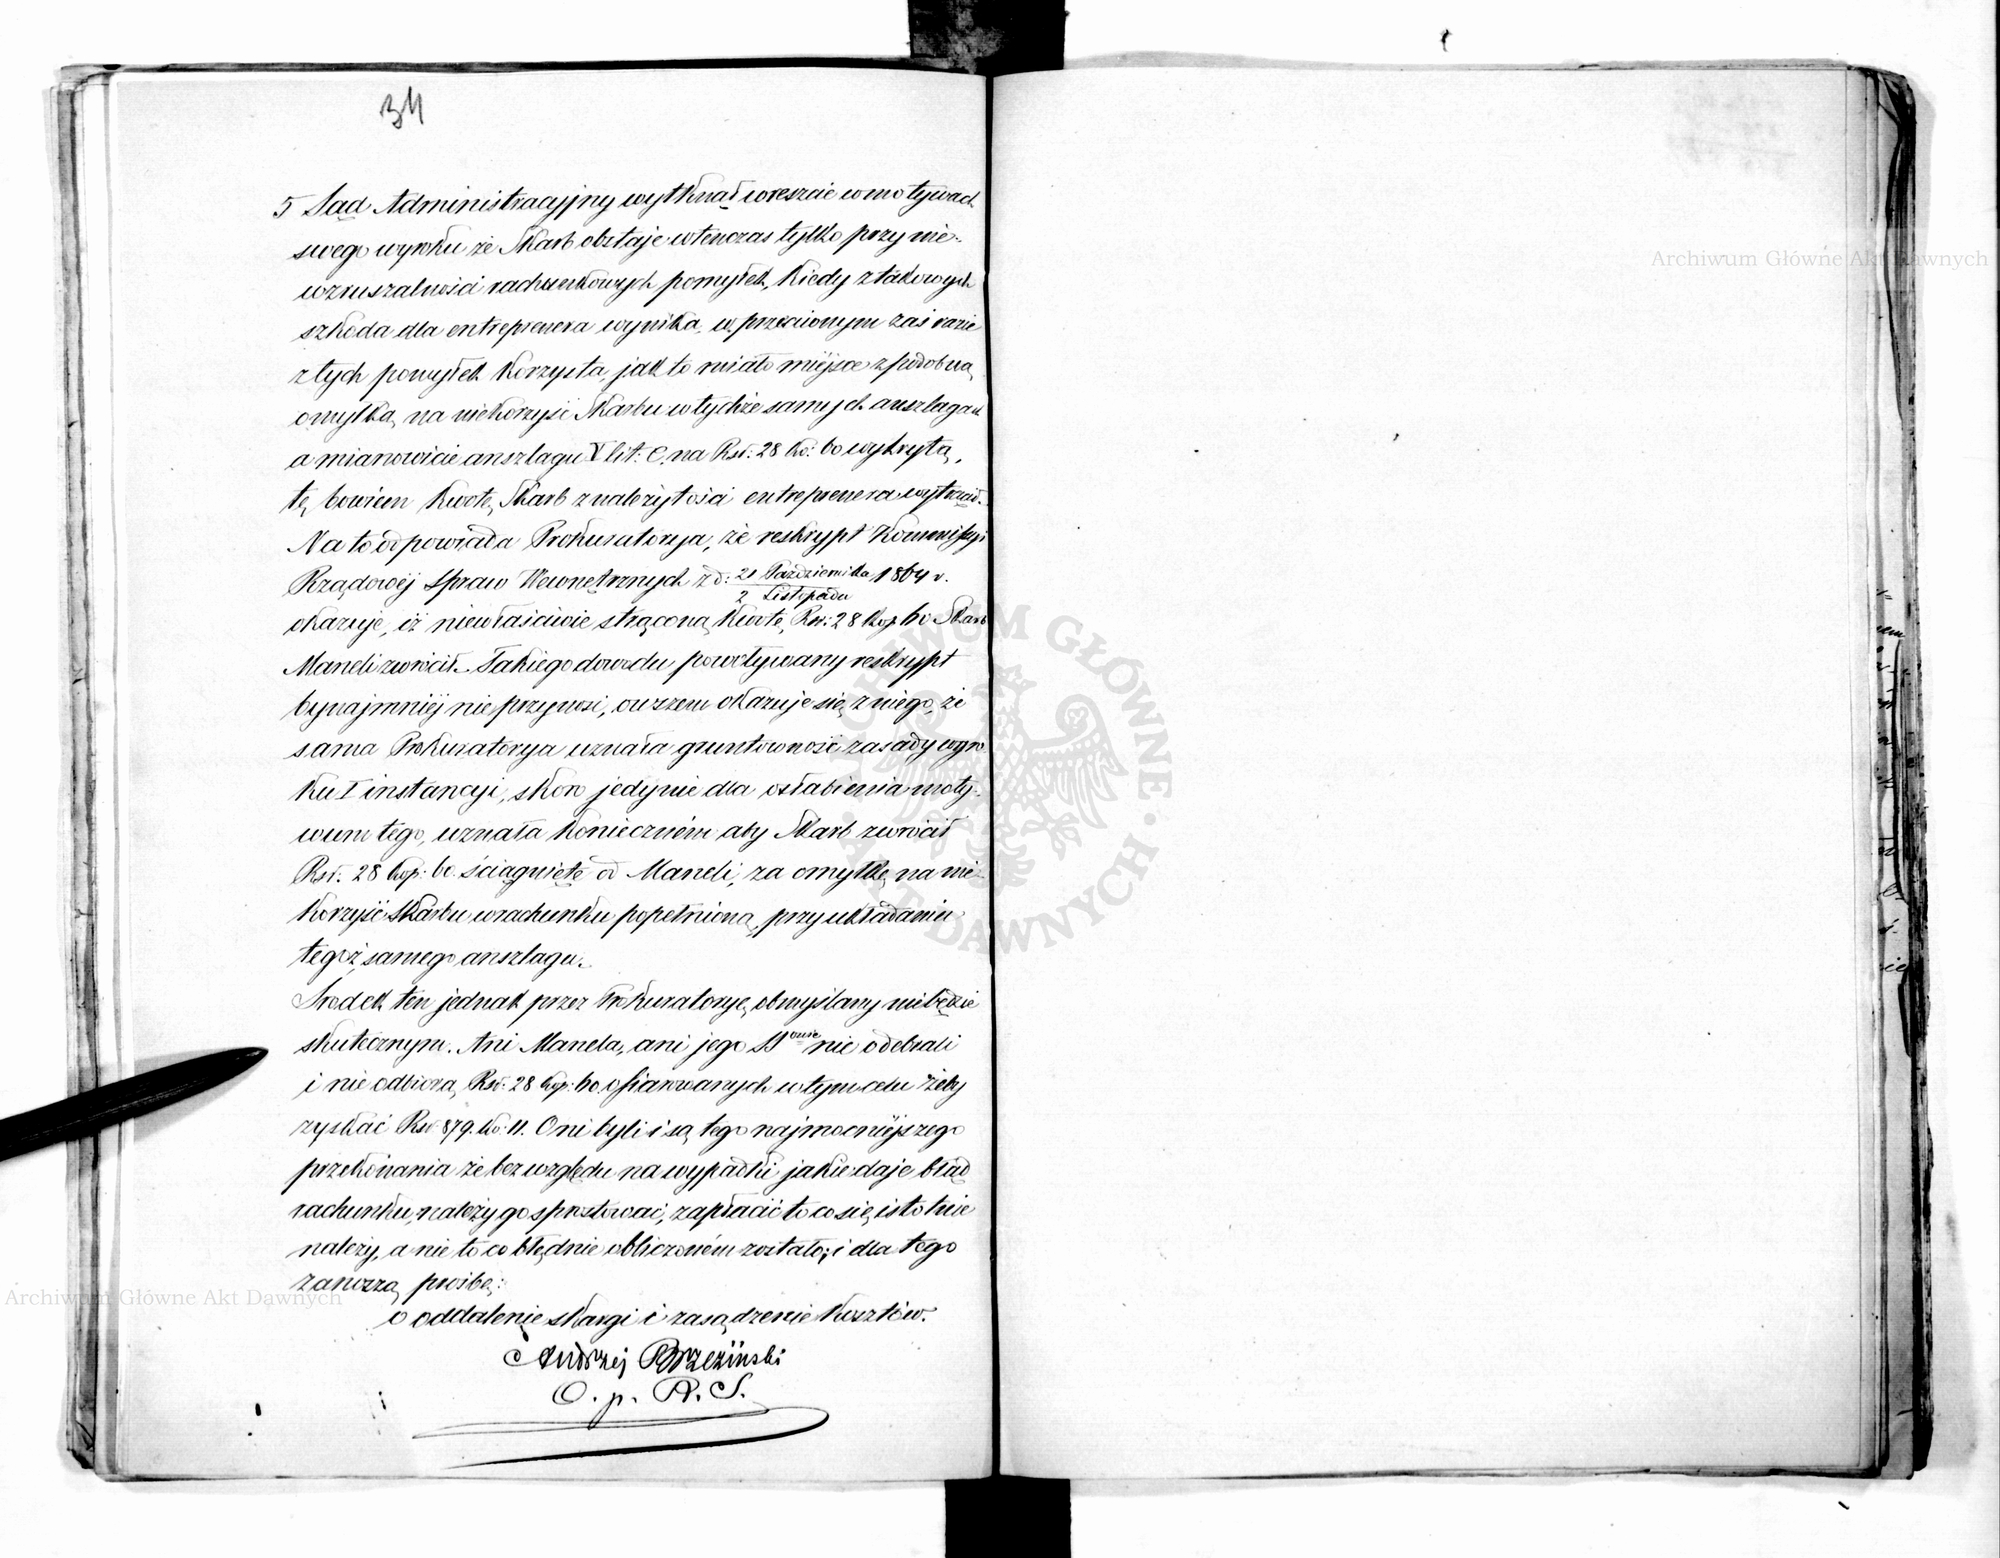 34
5 Sąd Administracyjny wytknął wreszcie w motywach
swego wyroku że Skarb obstaje wtenczas tylko przy nie-
wzruszalności rachunkowych pomyłek, kiedy z takowych
szkoda dla entreprenera wynika, w przeciwnym zaś razie
z tych pomyłek korzysta, jak to miało miéjsce z podobną
omyłką na niekorzyść Skarbu w tychże samych anszlagach
a mianowicie anszlagu V lit: C. na Rsr: 28 ko: 60 wykrytą,
tę bowiem kwotę Skarb z należytości entreprenera wytrącił.
Na to odpowiada Prokuratorya, że reskrypt Kommissyi
Rządowéj Spraw Wewnętrznych z d: 21 Października / 2 Listopada 1864 r.
okazuje, iż niewłaściwie strąconą kwotę Rsr: 28 kop 60 Skarb
Maneli zwrócił. Takiego dowodu powoływany reskrypt
bynajmniéj nie przynosi, owszem okazuje się z niego, że
sama Prokuratorya uznała gruntowność zasady wyro
ku I instancyi, skoro jedynie dla osłabienia moty-
wum tego, uznała konieczném aby Skarb zwrócił
Rsr. 28 kop: 60 ściągnięte od Maneli, za omyłkę na nie-
korzyść Skarbu w rachunku popełnioną, przy układaniu
tegoż samego anszlagu.
Środek ten jednak przez Prokuratoryę obmyślany nie będzie
skutecznym. Ani Manela, ani jego SS<sup>owie</sup> nie odebrali
i nie odbiorą Rsr: 28 kop: 60 ofiarowanych w tym celu żeby
zyskać Rsr 879. ko: 11. Oni byli i są tego najmocniéjszego
przekonania że bez względu na wypadki jakie daje błąd
rachunku, należy go sprostować, zapłacić to co się istotnie
należy, a nie to co błędnie obliczoném zostało; i dla tego
zanoszą prośbę:
o oddalenie skargi i zasądzenie kosztów.
Andrzej Brzeziński
O. p. R. S.
Archiwum Główne Akt Dawnych
Archiwum Główne Akt Dawnych
ARCHIWUM GŁÓWNE AKT DAWNYCH